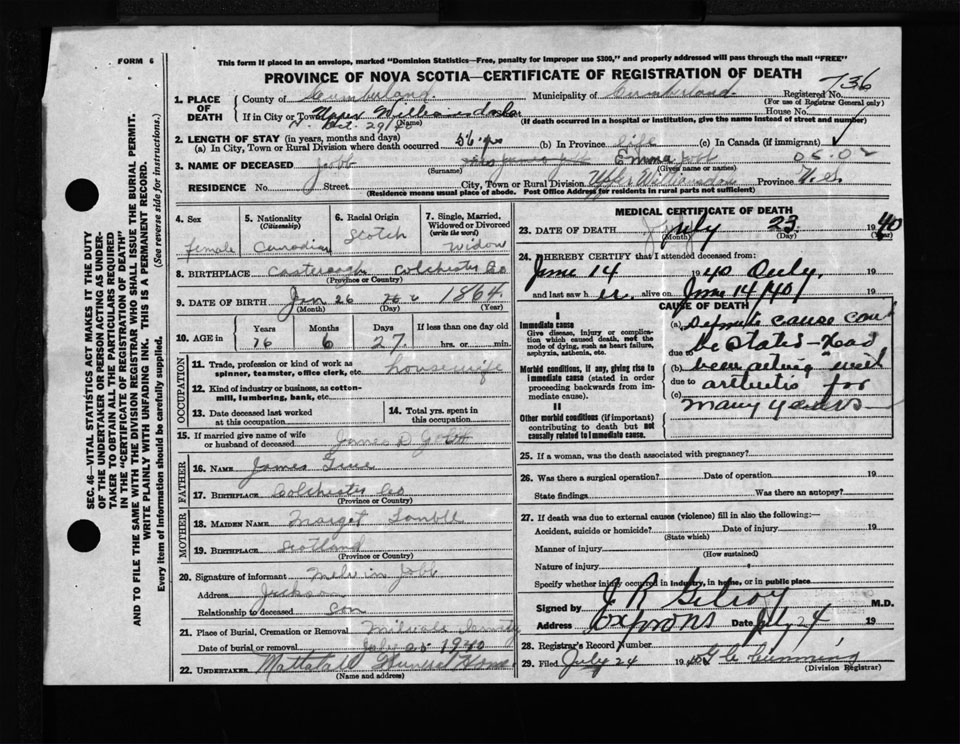 FORM 6
This form if placed in an envelope, marked "Dominion Statistics—Free, penalty for improper use $300," and properly addressed will pass through the mail "FREE"
PROVINCE OF NOVA SCOTIA—CERTIFICATE OF REGISTRATION OF DEATH
736
1. PLACE OF DEATH County of Cumberland. Municipality of Cumberland. Registered No.
(For use of Registrar General only)
If in City or Town Upper House No.
(Name) (If death occurred in a hospital or institution, give the name instead of street and number)
2. LENGTH OF STAY (in years, months and days)
(a) In City, Town or Rural Division where death occurred 56 yrs (b) In Province life (c) In Canada (if immigrant)
3. NAME OF DECEASED Jobb Emma Jobb 05.02
(Surname) (Given name or names)
RESIDENCE No. Street City, Town or Rural Division Upper Province N.S.
(Residence means usual place of abode. Post Office Address for residents in rural parts not sufficient)
4. Sex female
5. Nationality (Citizenship) Canadian
6. Racial Origin Scotch
7. Single, Married, Widowed or Divorced (write the word) Widow
8. BIRTHPLACE Colchester Co
(Province or Country)
9. DATE OF BIRTH Jan 26 1864
(Month) (Day) (Year)
10. AGE in Years Months Days If less than one day old
76 6 27 hrs. or min.
OCCUPATION
11. Trade, profession or kind of work as spinner, teamster, office clerk, etc. housewife
12. Kind of industry or business, as cotton-mill, lumbering, bank, etc.
13. Date deceased last worked at this occupation
14. Total yrs. spent in this occupation
15. If married give name of wife or husband of deceased James D Jobb
FATHER
16. NAME James
17. BIRTHPLACE Colchester Co
(Province or Country)
MOTHER
18. MAIDEN NAME Marget
19. BIRTHPLACE Scotland
(Province or Country)
20. Signature of informant Melvin Jobb
Address Jackson
Relationship to deceased Son
21. Place of Burial, Cremation or Removal
Date of burial or removal July 25 1940
22. UNDERTAKER Mattatall Funeral Home
(Name and address)
MEDICAL CERTIFICATE OF DEATH
23. DATE OF DEATH July 23 1940
(Month) (Day) (Year)
24. I HEREBY CERTIFY that I attended deceased from:
June 14 1940 Only. 19
and last saw her alive on June 14/40 19
CAUSE OF DEATH
I
Immediate cause
Give disease, injury or complication which caused death, not the mode of dying, such as heart failure, asphyxia, asthenia, etc.
Morbid conditions, if any, giving rise to immediate cause (stated in order proceeding backwards from immediate).
II
Other morbid conditions (if important) contributing to death but not causally related to immediate cause.
(a) Definite cause cant
due to be stated - Had
(b) been ailing with
due to arthritis for
(c) many years
25. If a woman, was the death associated with pregnancy?
26. Was there a surgical operation? Date of operation 19
State findings Was there an autopsy?
27. If death was due to external causes (violence) fill in also the following:—
Accident, suicide or homicide? Date of injury 19
(State which)
Manner of injury
(How sustained)
Nature of injury
Specify whether injury occurred in industry, in home, or in public place
Signed by J R Gilroy M.D.
Address Date July 24 19
28. Registrar's Record Number
29. Filed July 24 1940 G C Cumming
(Division Registrar)
SEC. 46—VITAL STATISTICS ACT MAKES IT THE DUTY
OF THE UNDERTAKER OR PERSON ACTING AS UNDER-
TAKER TO OBTAIN ALL THE PARTICULARS REQUIRED
IN THE "CERTIFICATE OF REGISTRATION OF DEATH"
AND TO FILE THE SAME WITH THE DIVISION REGISTRAR WHO SHALL ISSUE THE BURIAL PERMIT.
WRITE PLAINLY WITH UNFADING INK. THIS IS A PERMANENT RECORD.
Every item of Information should be carefully supplied. (See reverse side for instructions.)